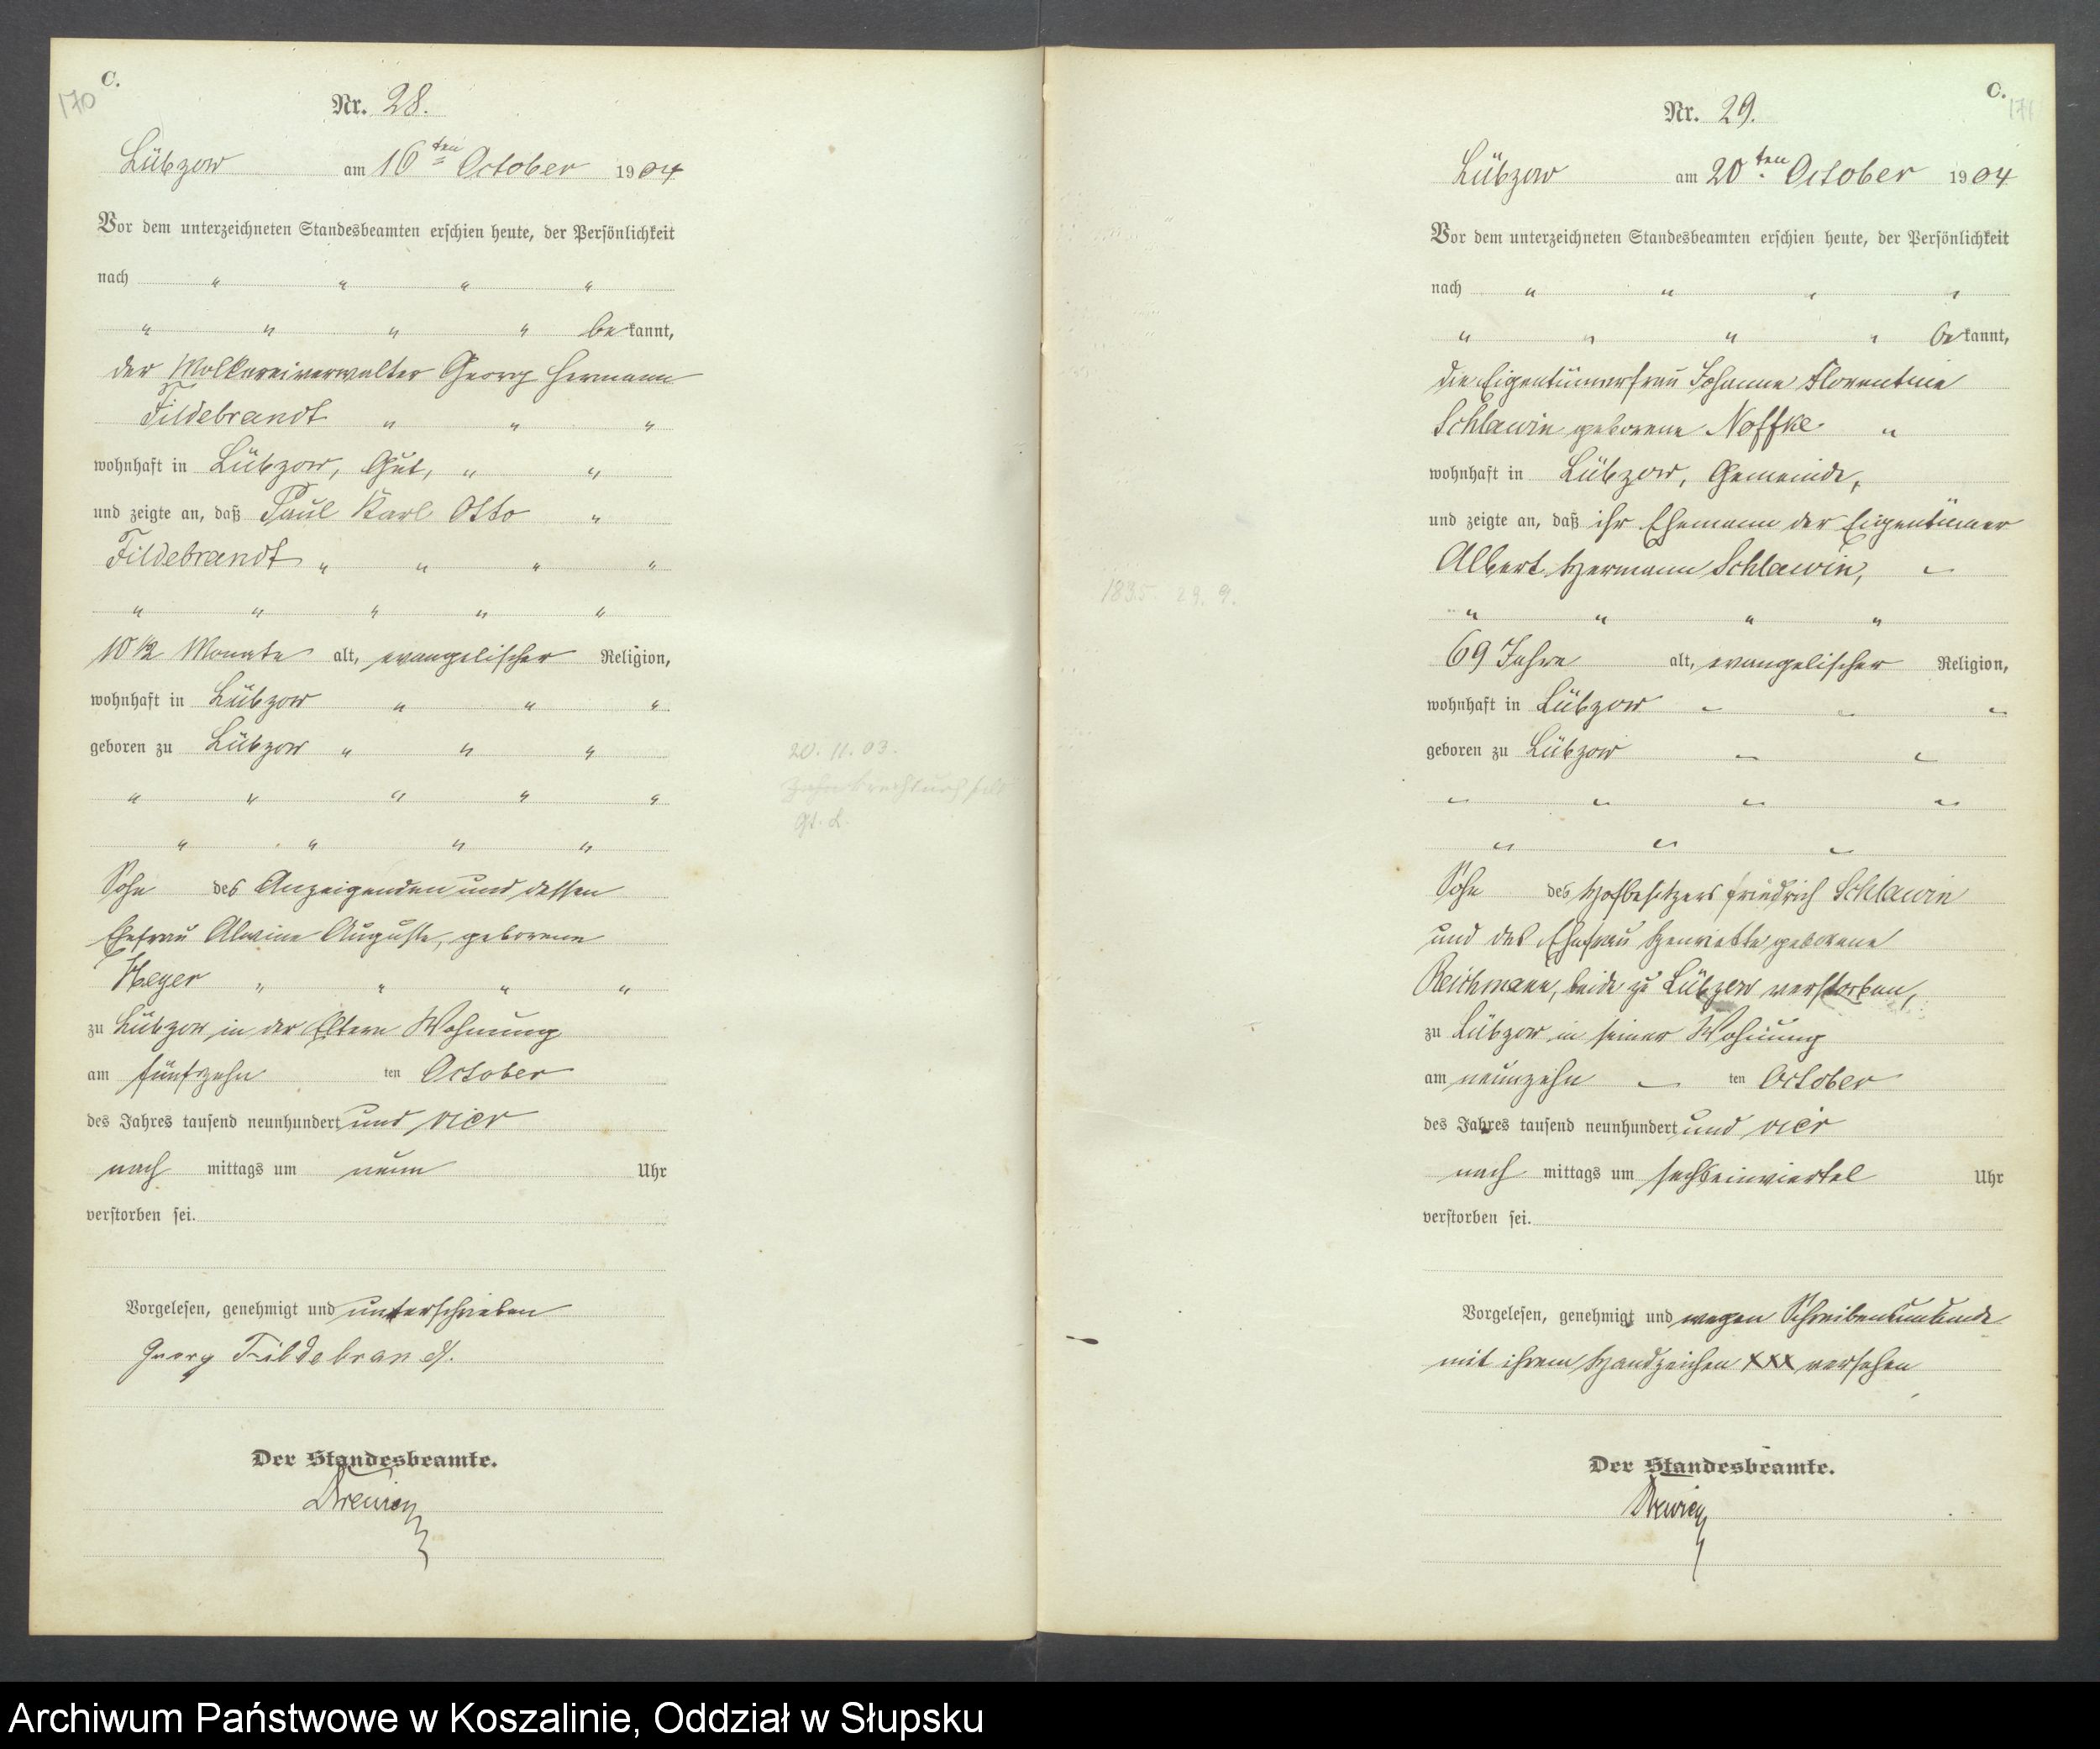 C.
170
Nr. 28.
Lübzow am 16ten October 1904
Vor dem unterzeichneten Standesbeamten erschien heute, der Persönlichkeit
nach " " " "
" " " " bekannt,
der Molkereiverwalter Georg Hermann
Fildebrandt " " "
wohnhaft in Lübzow, Gut, " "
und zeigte an, daß Paul Karl Otto "
Fildebrandt " " " "
" " " " "
10 1/2 Monate alt, evangelischer Religion,
wohnhaft in Lübzow " " "
geboren zu Lübzow " " "
" " " " "
" " " "
Sohn des Anzeigenden und dessen
Ehefrau Alwine Auguste, geborene
Heyer " " " "
zu Lübzow in der Eltern Wohnung
am fünfzehn ten October
des Jahres tausend neunhundert und vier
nach mittags um neun Uhr
verstorben sei.
Vorgelesen, genehmigt und unterschrieben
Georg Fildebrandt.
Der Standesbeamte.
20. 11. 03.
C.
171
Nr. 29.
Lübzow am 20ten October 1904
Vor dem unterzeichneten Standesbeamten erschien heute, der Persönlichkeit
nach " " " "
" " " " bekannt,
die Eigentümerfrau Johanne Florentine
Schlawin geborene Noffke "
wohnhaft in Lübzow, Gemeinde,
und zeigte an, daß ihr Ehemann der Eigentümer
Albert Hermann Schlawin, "
" " " "
1835. 29. 9.
69 Jahre alt, evangelischer Religion,
wohnhaft in Lübzow " " "
geboren zu Lübzow " "
" " " "
" " "
Sohn des Hofbesitzers Friedrich Schlawin
und des Ehefrau Henriette geborene
Reichmann, beide zu Lübzow verstorben,
zu Lübzow in seiner Wohnung
am neunzehn " ten October
des Jahres tausend neunhundert und vier
nach mittags um sechseinviertel Uhr
verstorben sei.
Vorgelesen, genehmigt und wegen Schreibensunkunde
mit ihrem Handzeichen XXX versehen
Der Standesbeamte.
Archiwum Państwowe w Koszalinie, Oddział w Słupsku